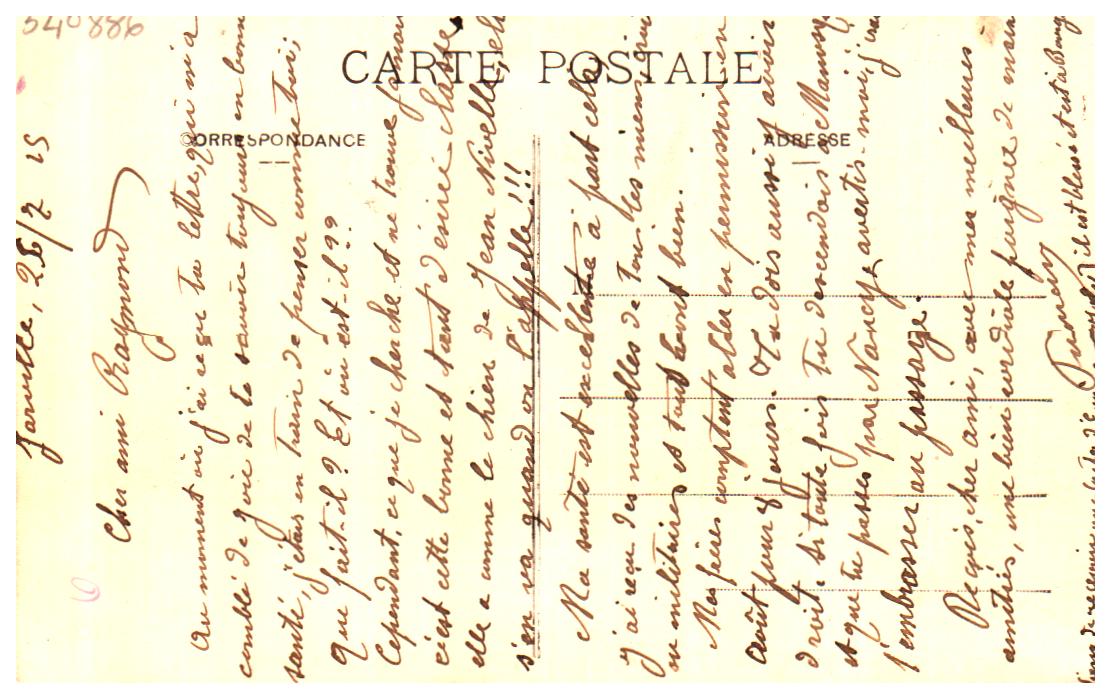 540886
CARTE POSTALE
CORRESPONDANCE
ADRESSE
Jarville, 25/7 15
Cher ami Raymond
Au moment où j'ai reçu ta lettre, qui m'a
comblé de joie de te savoir toujours en bonne
santé, j'étais en train de penser comme toi;
que fait-il ? Et où est-il ??
Cependant, ce que je cherche et ne trouve jamais
c'est cette bonne et tant désirée
elle a comme le chien de Jean Nivelle, elle
s'en va quand on l'appelle!!!
Ma santé est excellente à part cela
j'ai reçu des nouvelles de tous les miens
ou militaires et tout avant bien.
Mes frères comptent aller en permission
août pour 8 jours. Tu dois aussi y avoir
droit. Si toute fois tu descendois à
et que tu passes par Nancy, avertis-moi, j'irai
t'embrasser au passage.
Reçois, cher ami, avec mes meilleures
amitiés, une bien cordiale poignée de main
il est blessé et est à